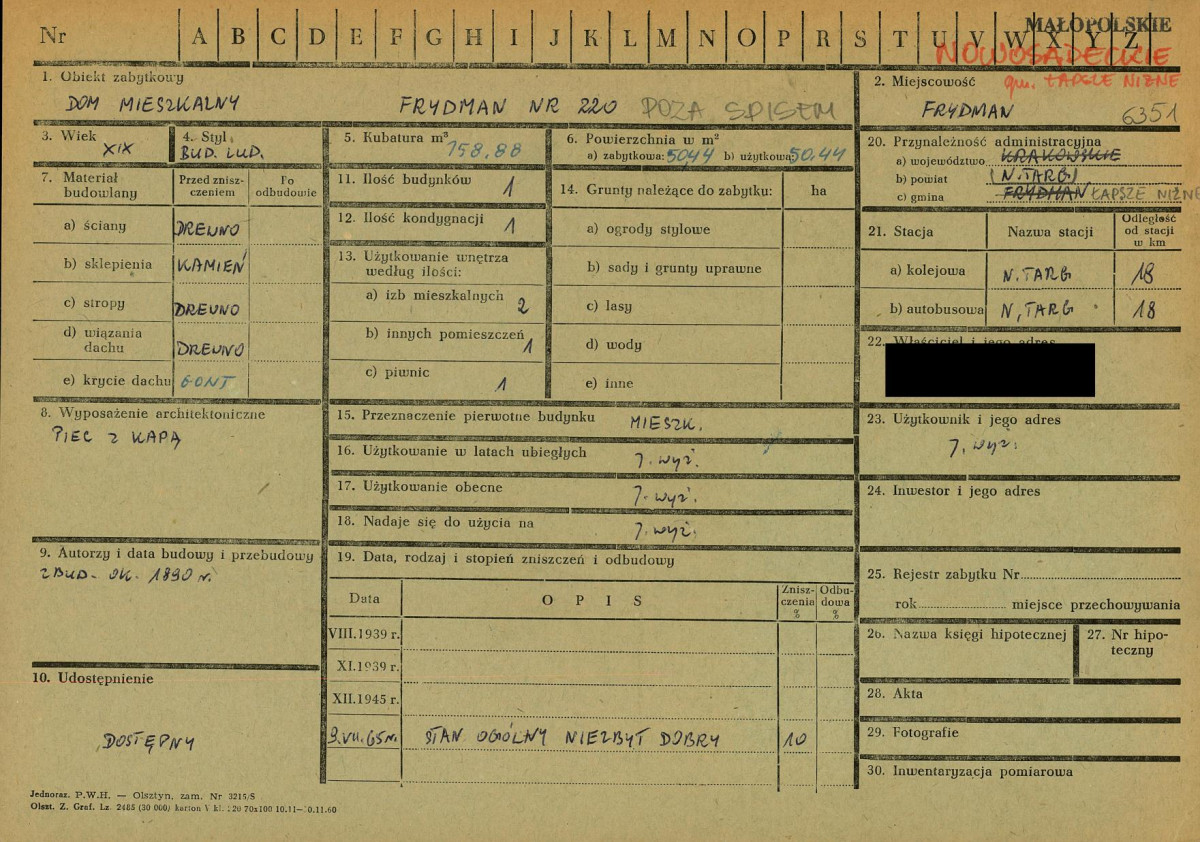 Nr A B C D E F G H I J K L M N O P R S T U V W X Y Z
MAŁOPOLSKIE
NOWOSĄDECKIE
gm. ŁAPSZE NIŻNE
1. Obiekt zabytkowy
DOM MIESZKALNY FRYDMAN NR 220 POZA SPISEM
2. Miejscowość
FRYDMAN 6351
3. Wiek
XIX
4. Styl
BUD. LUD.
5. Kubatura m³
158.88
6. Powierzchnia w m²
a) zabytkowa: 5044 b) użytkowa 50.44
20. Przynależność administracyjna
a) województwo KRAKOWSKIE
b) powiat N. TARG
c) gmina FRYDMAN ŁAPSZE NIŻNE
7. Materiał budowlany
Przed zniszczeniem
Po odbudowie
a) ściany DREWNO
b) sklepienia KAMIEŃ
c) stropy DREWNO
d) wiązania dachu DREWNO
e) krycie dachu GONT
11. Ilość budynków 1
12. Ilość kondygnacji 1
13. Użytkowanie wnętrza według ilości:
a) izb mieszkalnych 2
b) innych pomieszczeń 1
c) piwnic 1
14. Grunty należące do zabytku: ha
a) ogrody stylowe
b) sady i grunty uprawne
c) lasy
d) wody
e) inne
21. Stacja Nazwa stacji Odległość od stacji w km
a) kolejowa N. TARG 18
b) autobusowa N, TARG 18
22. Właściciel i jego adres
8. Wyposażenie architektoniczne
PIEC Z KAPĄ
15. Przeznaczenie pierwotne budynku MIESZK.
16. Użytkowanie w latach ubiegłych J. wyż.
17. Użytkowanie obecne J. wyż.
18. Nadaje się do użycia na J. wyż.
23. Użytkownik i jego adres
J. wyż.
24. Inwestor i jego adres
9. Autorzy i data budowy i przebudowy
ZBUD. OK. 1890 r.
19. Data, rodzaj i stopień zniszczeń i odbudowy
Data OPIS Zniszczenia % Odbudowa %
VIII.1939 r.
XI.1939 r.
XII.1945 r.
9.VII.65 r. STAN OGÓLNY NIEZBYT DOBRY 10
25. Rejestr zabytku Nr
rok miejsce przechowywania
26. Nazwa księgi hipotecznej
27. Nr hipoteczny
10. Udostępnienie
DOSTĘPNY
28. Akta
29. Fotografie
30. Inwentaryzacja pomiarowa
Jednoraz. P.W.H. — Olsztyn, zam. Nr 3215/S
Olszt. Z. Graf. Lz. 2485 (30 000) karton V kl.